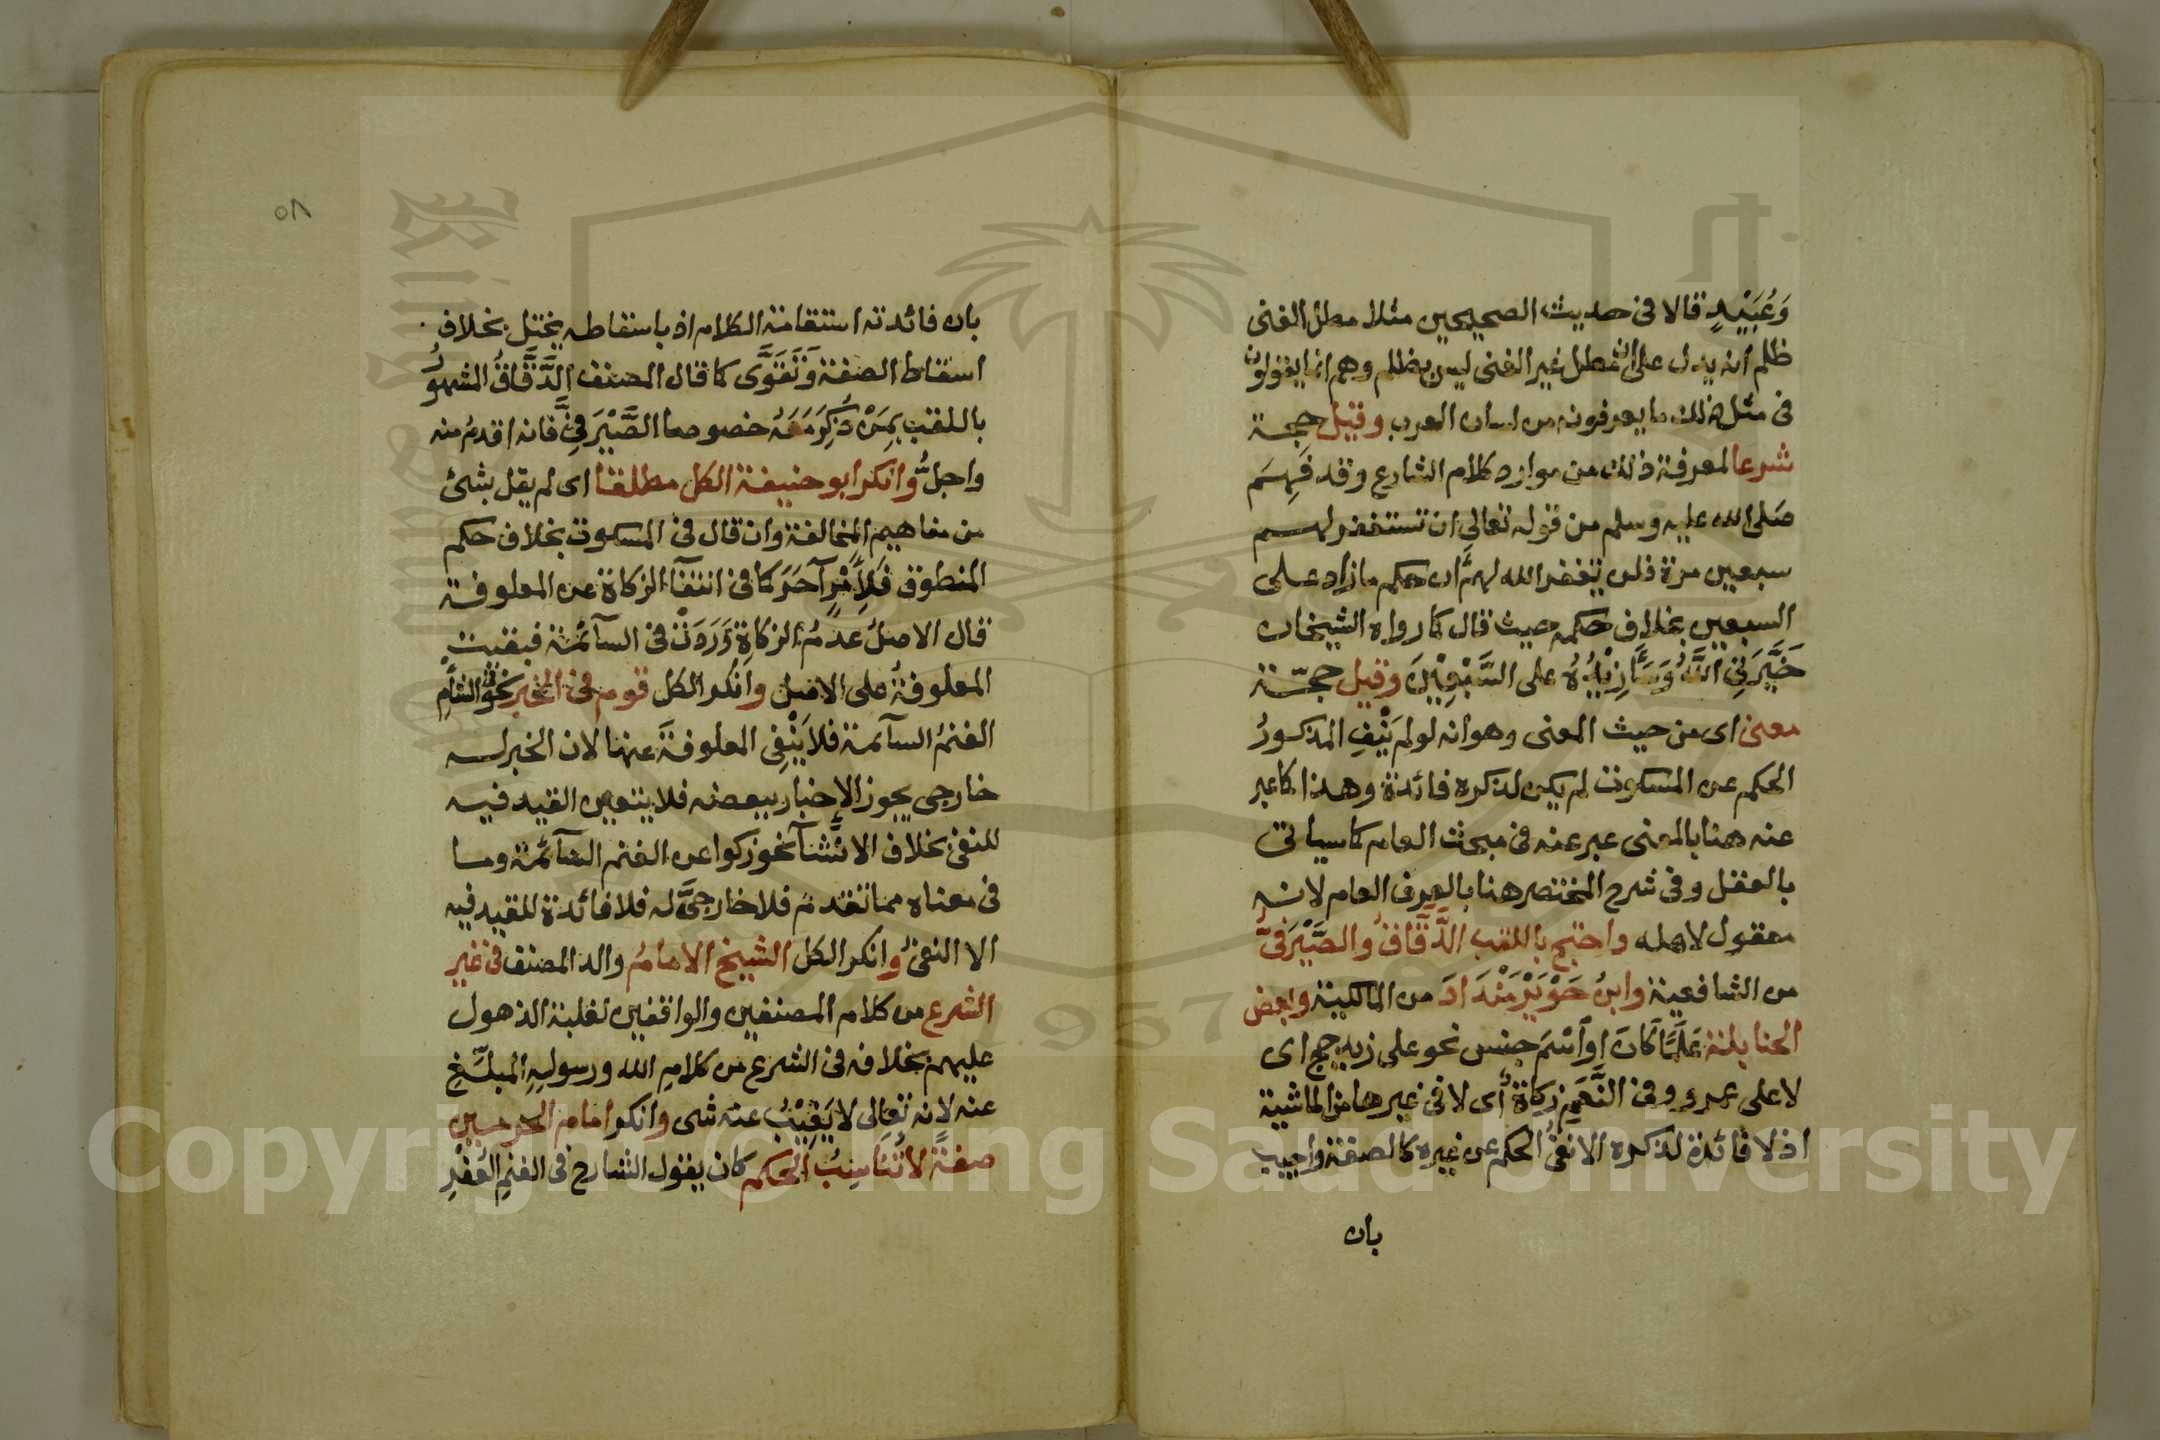 وَعُبَيْدٍ قالا في حديث الصحيحين مثلا مطل الغنى
ظلم انه يدل على ان مطل غير الغنى ليس بظلم وهم انما يقولون
في مثل ذلك ما يعرفونه من لسان العرب وقيل حجة
شرعا لمعرفة ذلك من موارد كلام الشارع وقد فَهِمَ
صلى الله عليه وسلم من قوله تعالى ان تستغفر لهم
سبعين مرة فلن يغفر الله لهم ان حكم ما زاد على
السبعين بخلاف حكمه حيث قال كما رواه الشيخان
خَيَّرَنِي اللَّهُ وَسَأَزِيْدُهُ على السَّبْعِيْنَ وقيل حجّة
معنى اى من حيث المعنى وهو انه لو لم يَنْفِ المذكورُ
الحكم عن المسكوت لم يكن لذكره فائدة وهذا كما عبر
عنه هنا بالمعنى عبر عنه في مبحث العام كما سياتى
بالعقل وفي شرح المختصر هنا بالعرف العام لانه
معقول لاهله واحتج باللقب الدَّقَّاقُ والصَّيْرَفِيُّ
من الشافعية وابنُ خَوَيْزِ مَنْدَادَ من المالكية وبعض
الحنابلة عَلَمًا كَانَ اوِ اسْمَ جنس نحو على زيد حج اى
لا على عمرو وفي النَّعَمِ زكاةٌ اى لا في غيرها من الماشية
اذ لا فائدة لذكره الا نفىُ الحكم عن غيره كالصفة واجيب
بان
٥٨
بان فائدته استقامة الكلام اذ باسقاطه يختل بخلاف
اسقاط الصفة وَتَقَوَّى كما قال المصنف الدَّقَّاقُ المشهورُ
باللقب بِمَنْ ذُكِرَ مَعَهُ خصوصا الصَّيْرَفِيَّ فانه اقدمُ منه
واجلُّ وانكر ابو حنيفة الكل مطلقا اى لم يقل بشئ
من مفاهيم المخالفة وان قال في المسكوت بخلاف حكم
المنطوق فَلِأَمْرٍ آخَرَ كما في انتفآء الزكاة عن المعلوفة
قال الاصلُ عدمُ الزكاةِ وَرَدَتْ في السآئمة فبقيت
المعلوفةُ على الاصل وانكر الكل قوم في الخبر نحو في الشأمِ
الغنمُ السآئمة فلا يَنْفِى المعلوفةَ عنها لان الخبر له
خارجى يجوز الإخبار ببعضه فلا يتعين القيد فيه
للنفى بخلاف الانشآء نحو زكوا عن الغنم السآئمة وما
في معناه مما تقدم فلا خارجىَّ له فلا فائدة للقيد فيه
الا النفىُ وانكر الكل الشيخ الامامُ والد المصنف في غير
الشرع من كلام المصنفين والواقفين لغلبة الذهول
عليهم بخلافه في الشرع من كلامِ الله ورسولِهِ المبلِّغِ
عنه لانه تعالى لا يَغِيْبُ عنه شى وانكر امام الحرمين
صفةً لا تُنَاسِبُ الحكم كان يقول الشارح في الغنمِ العُفْرِ
Copyright © King Saud University
King Saud
1957